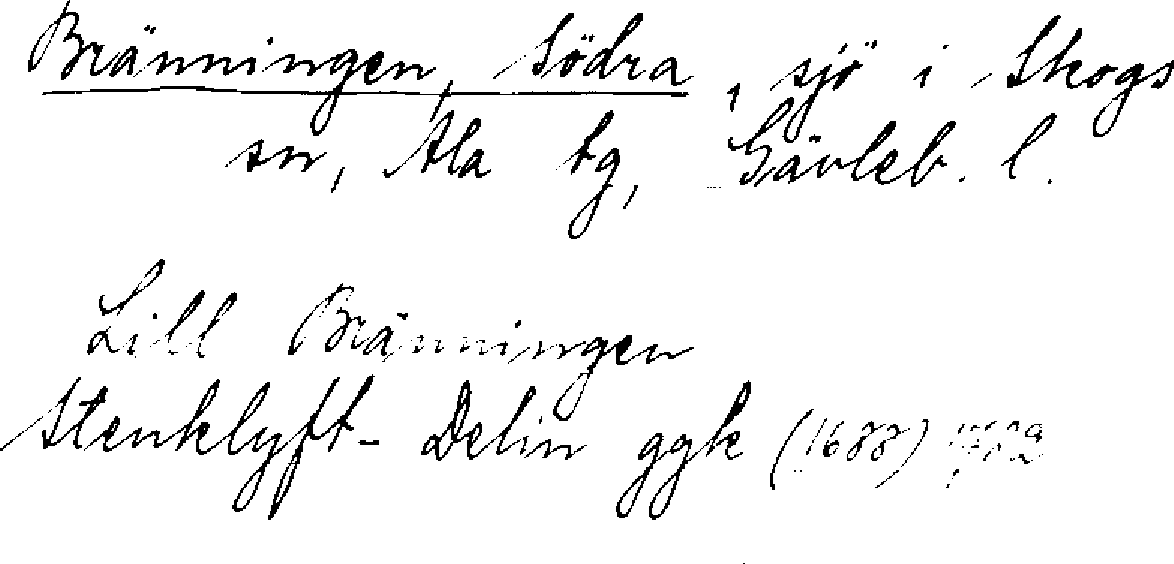 Bränningen, Södra, sjö i Skogs
sn, Ala tg, Gävleb. l.
Lill Bränningen
Stenklyft- Delin ggk (1688)